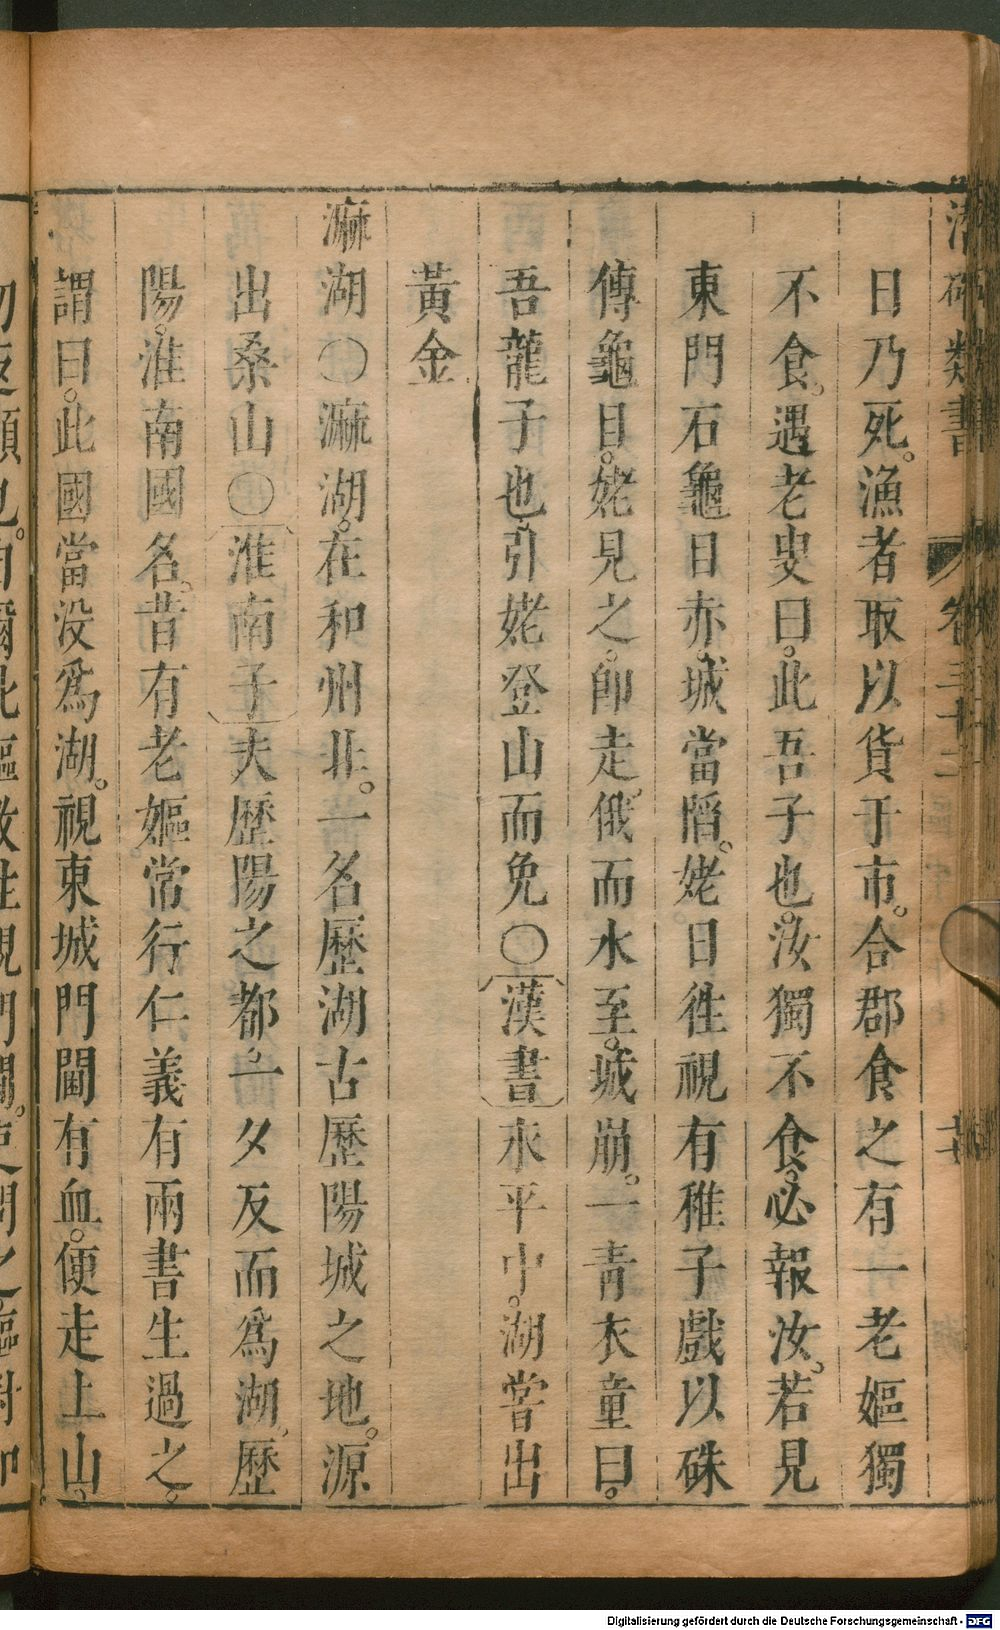 潛確類書 卷三十二
日乃死。漁者取以貨于市。合郡食之有一老嫗獨
不食。遇老叟曰。此吾子也。汝獨不食。必報汝。若見
東門石龜目赤。城當陷。姥日徃視有稚子戲以硃
傳龜目。姥見之。卽走。俄而水至。城崩。一青衣童曰。
吾龍子也。引姥登山而免〇漢書永平中。湖嘗出
黃金
㴚湖〇㴚湖。在和州北。一名歷湖古歷陽城之地。源
出桑山〇淮南子夫歷陽之都。一夕反而爲湖。歷
陽。淮南國名。昔有老嫗常行仁義有兩書生過之。
謂曰。此國當没爲湖。視東城門閫有血。便走上山。
Digitalisierung gefördert durch die Deutsche Forschungsgemeinschaft - DFG